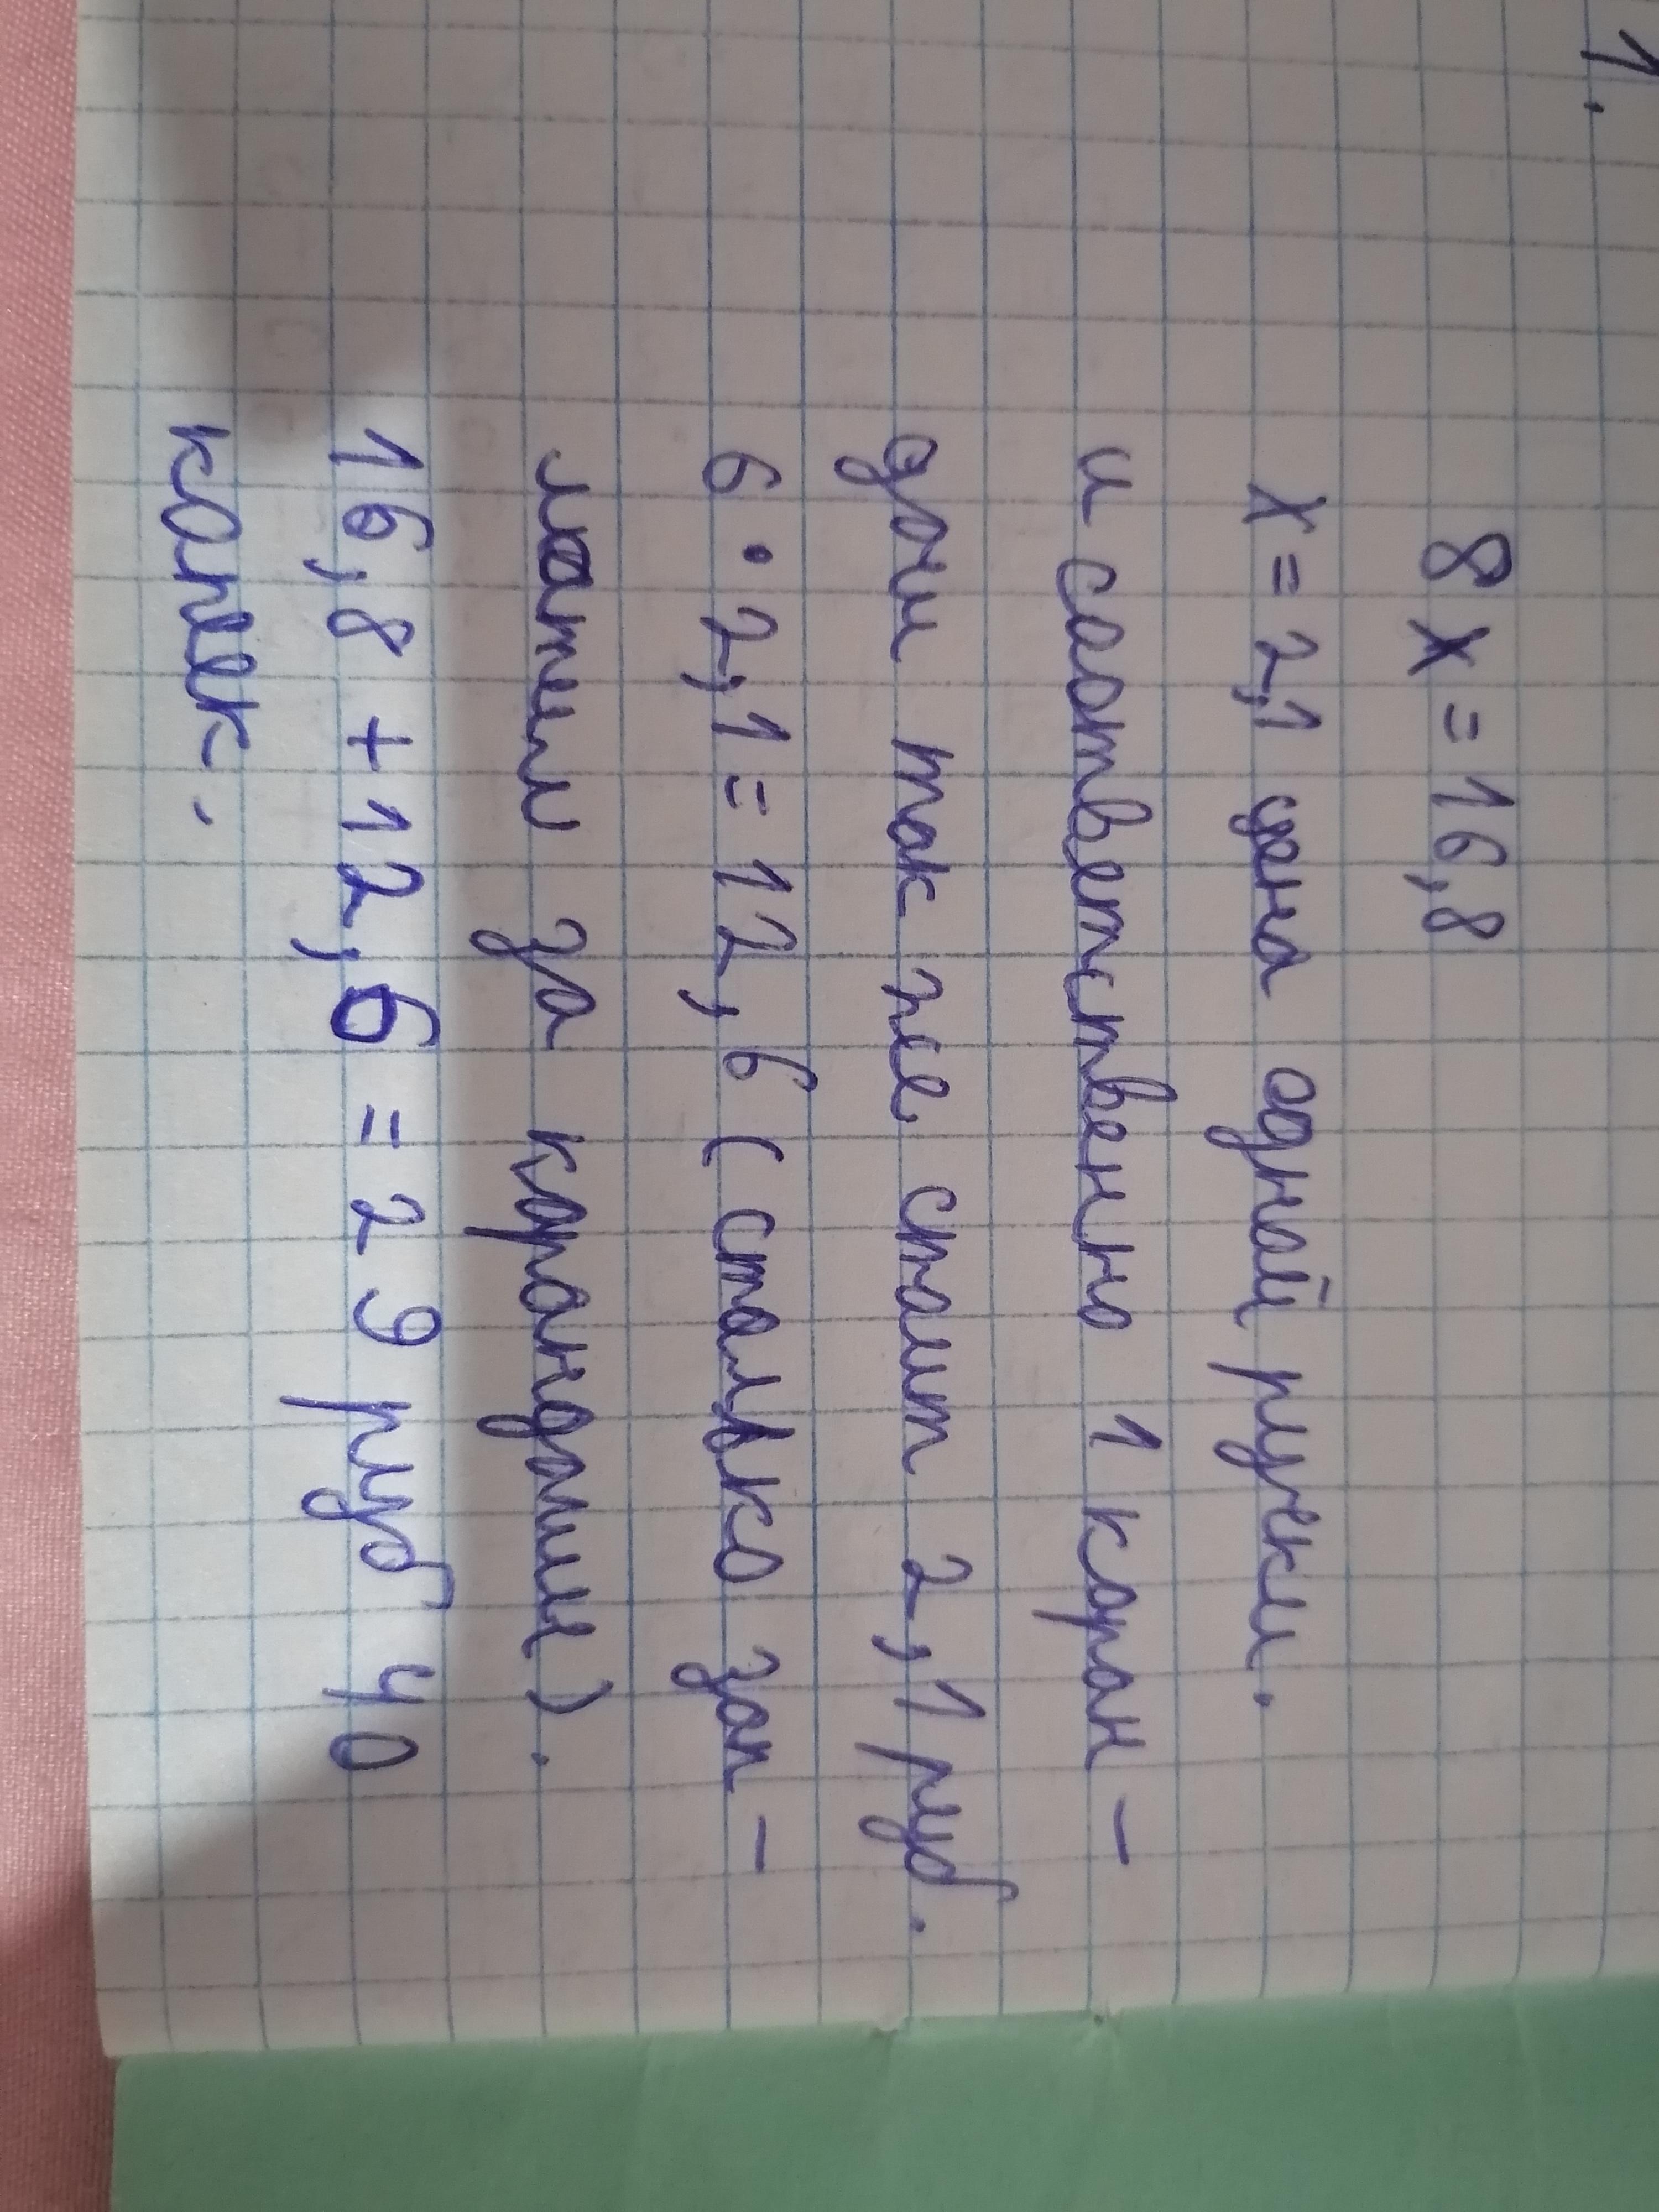 1.
8х = 16,8
х = 2,1 цена одной ручки.
и соответственно 1 каран-
даш так же стоит 2,1 руб.
6 · 2,1 = 12,6 (столько зап-
латили за карандаши).
16,8 + 12,6 = 29 руб 40
копеек.